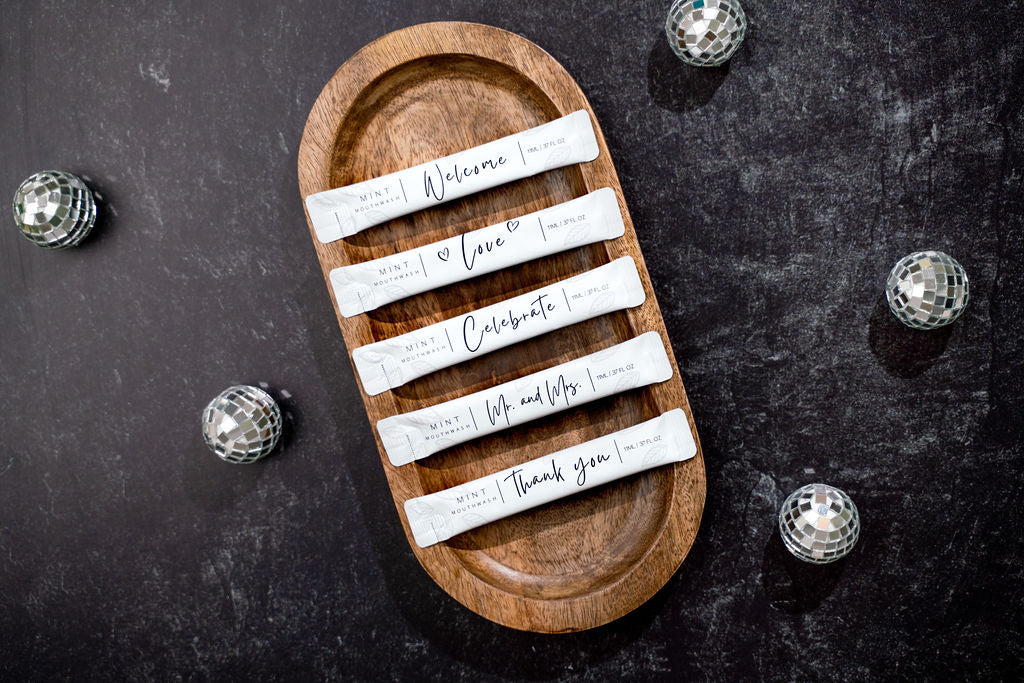 MINT
MOUTHWASH
Welcome
11ML / .37 FL OZ
MINT
MOUTHWASH
Love
11ML / .37 FL OZ
MINT
MOUTHWASH
Celebrate
11ML / .37 FL OZ
MINT
MOUTHWASH
Mr. and Mrs.
11ML / .37 FL OZ
MINT
MOUTHWASH
Thank you
11ML / .37 FL OZ